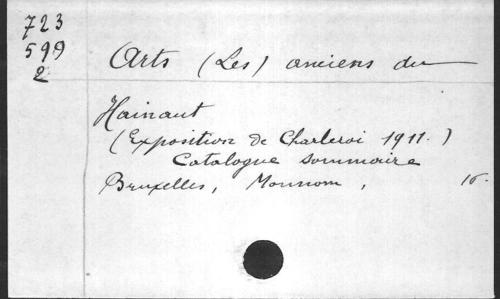 723
599
2
Arts (Les) anciens du
Hainaut
(Exposition de Charleroi 1911.)
Catalogue sommaire
Bruxelles, Monnom, 16.